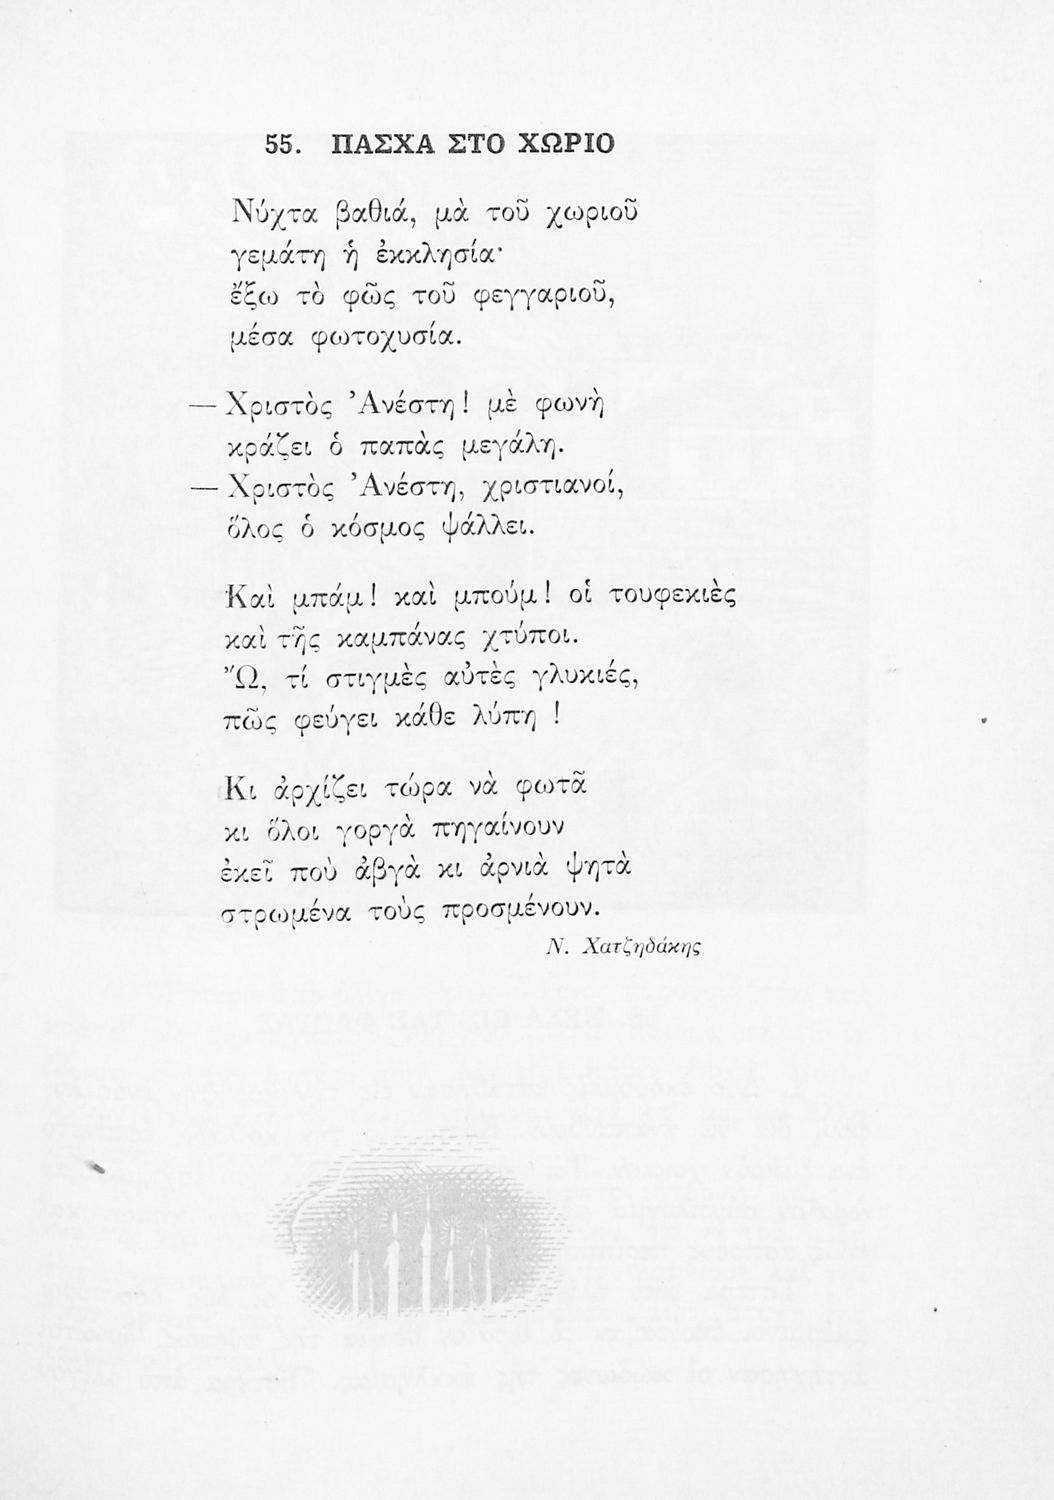 55. ΠΑΣΧΑ ΣΤΟ ΧΩΡΙΟ
Νύχτα βαθιά, μὰ τοῦ χωριοῦ
γεμάτη ἡ ἐκκλησία·
ἔξω τὸ φῶς τοῦ φεγγαριοῦ,
μέσα φωτοχυσία.
— Χριστὸς Ἀνέστη! μὲ φωνὴ
κράζει ὁ παπὰς μεγάλη.
— Χριστὸς Ἀνέστη, χριστιανοί,
ὅλος ὁ κόσμος ψάλλει.
Καὶ μπάμ! καὶ μπούμ! οἱ τουφεκιὲς
καὶ τῆς καμπάνας χτύποι.
Ὤ, τί στιγμὲς αὐτὲς γλυκιές,
πῶς φεύγει κάθε λύπη !
Κι ἀρχίζει τώρα νὰ φωτᾶ
κι ὅλοι γοργὰ πηγαίνουν
ἐκεῖ ποὺ ἀβγὰ κι ἀρνιὰ ψητὰ
στρωμένα τοὺς προσμένουν.
Ν. Χατζηδάκης